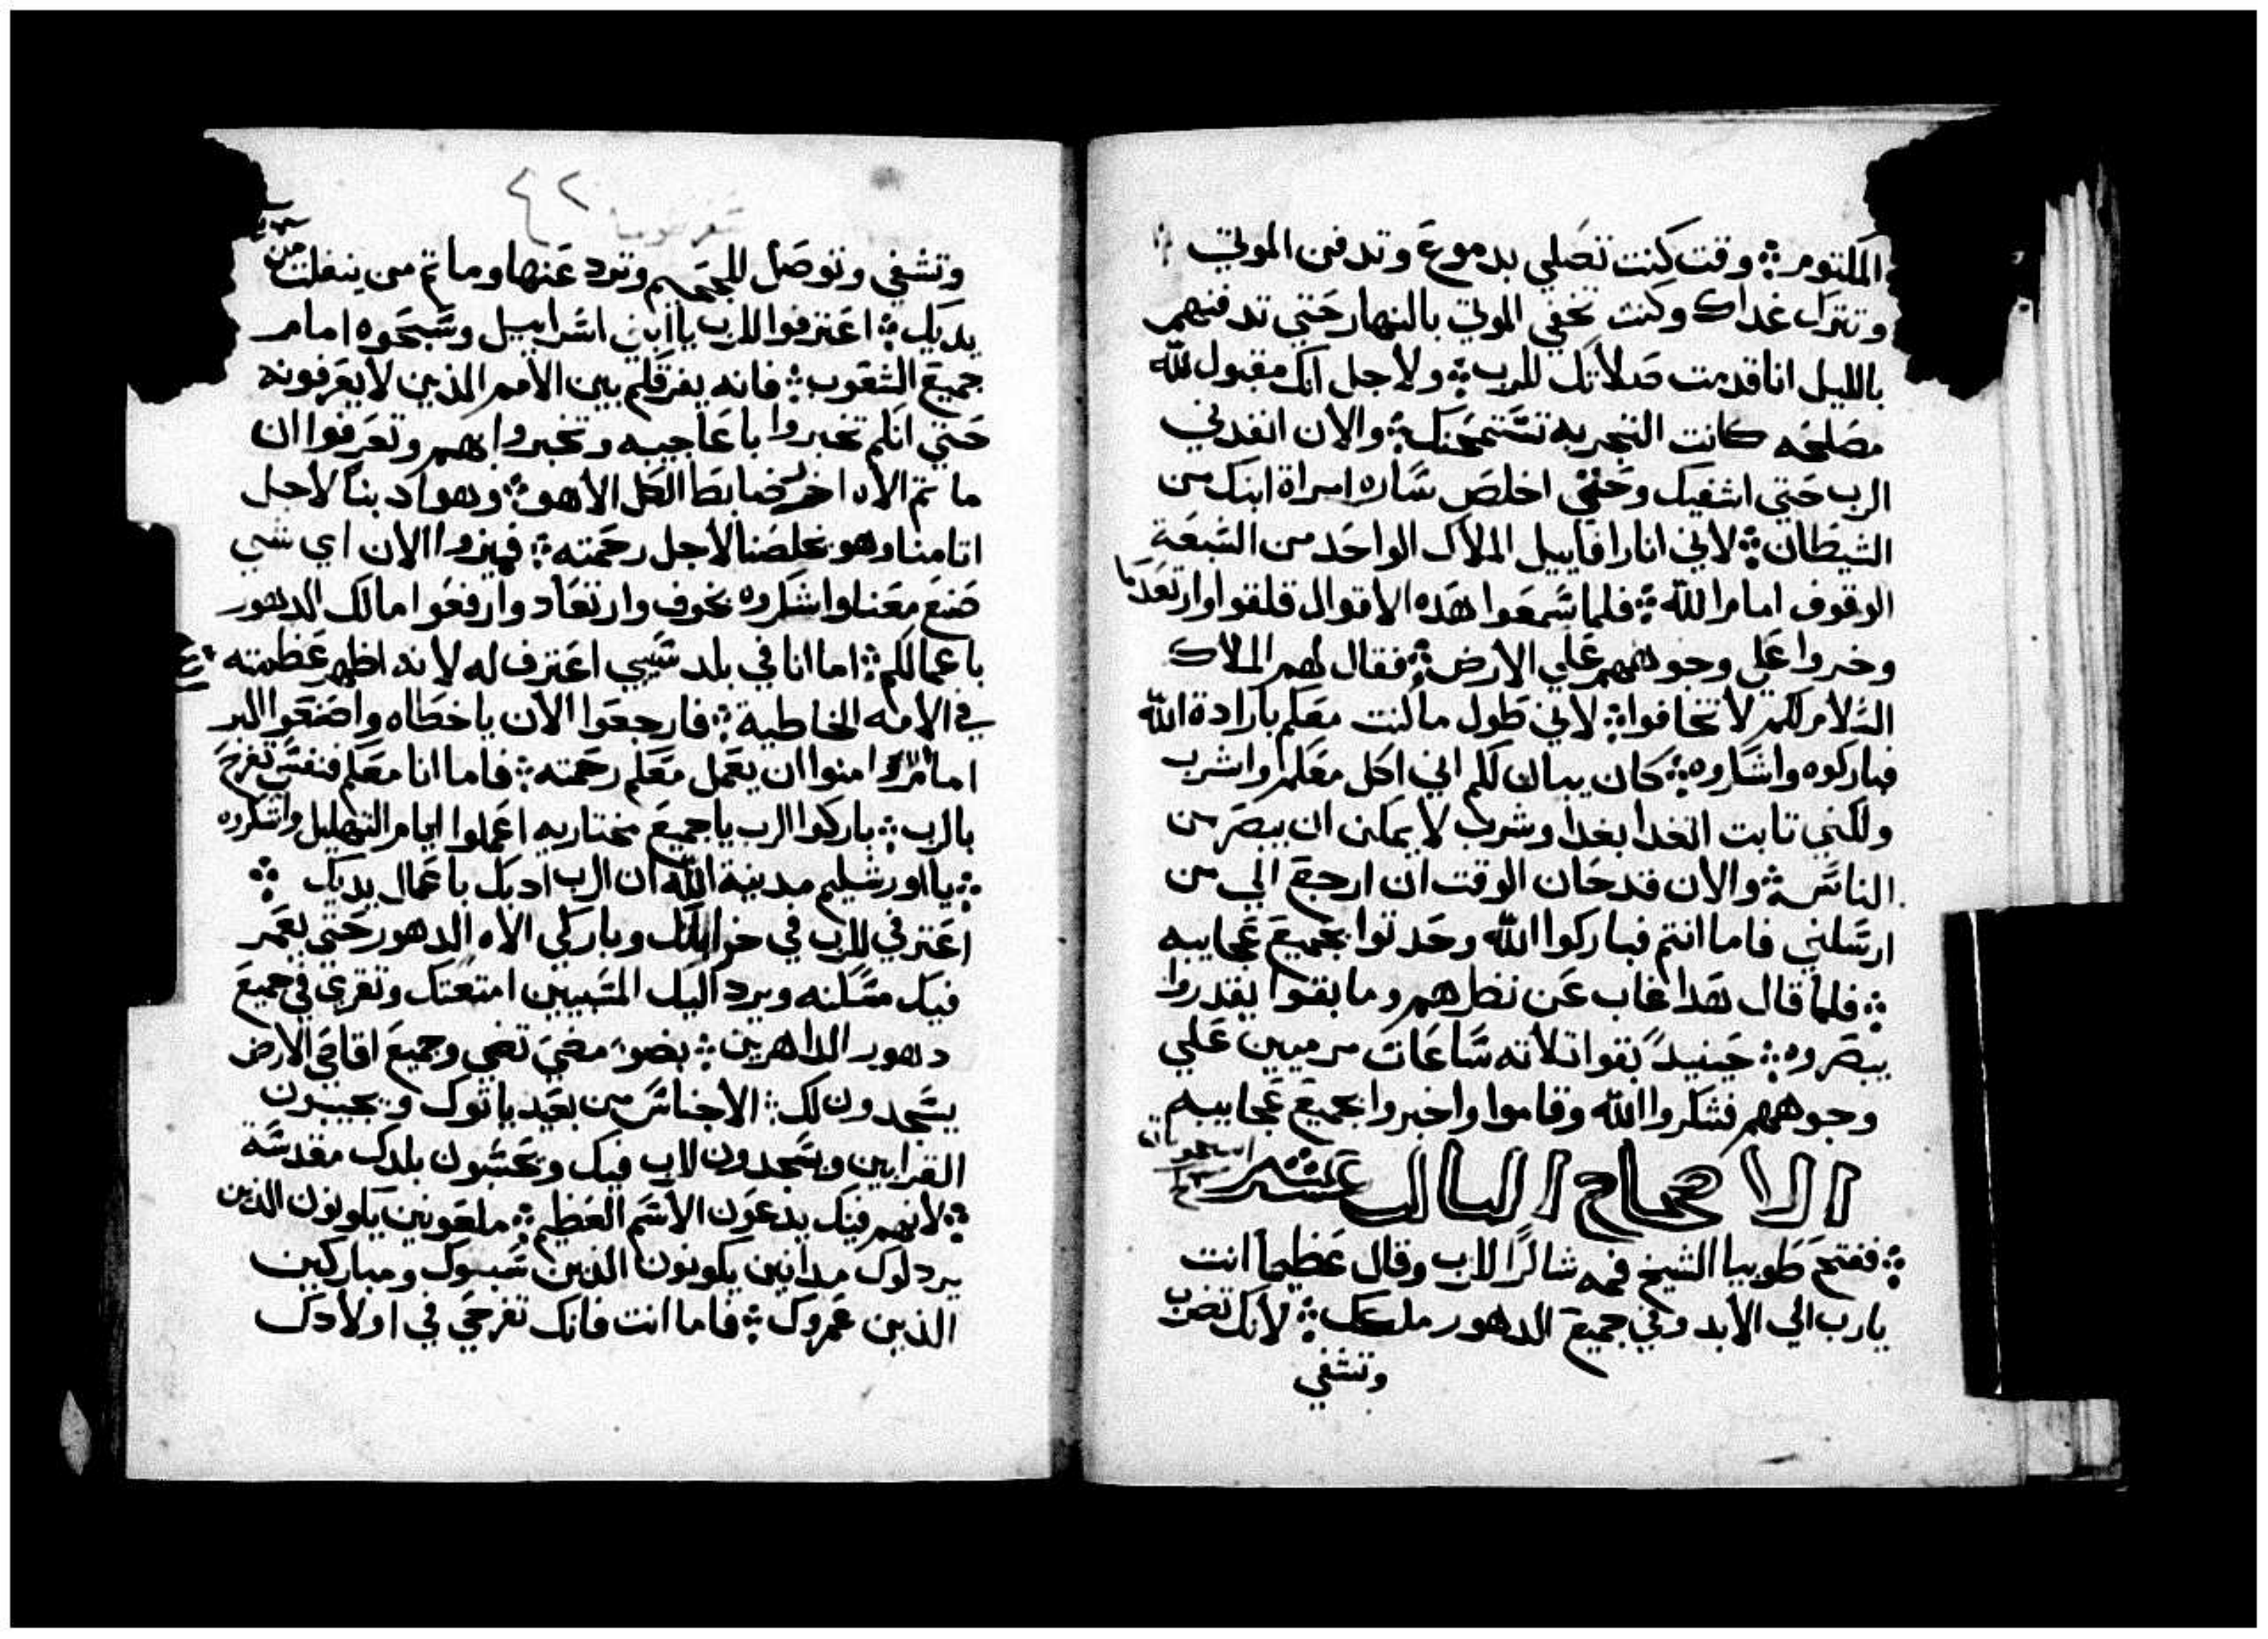 المكتوم ܀ وقت كنت تصلي بدموع وتدفن الموتي
وتترك غداك وكنت تخفي الموتي بالنهار حتي تدفنهم
بالليل انا قدمت صلاتك للرب ܀ ولاجل انك مقبول لله
مصلحه كانت التجربه تستمحنك ܀ والان انفدني
الرب حتي اشفيك وحتي اخلص ساره امراة ابنك من
الشيطان ܀ لاني انا رافاييل الملاك الواحد من السبعة
الوقوف امام الله ܀ فلما سمعوا هده الاقوال قلقوا وارتعدوا
وخروا علي وجوههم علي الارض ܀ فقال لهم الملاك
السلام لكم لا تخافوا ܀ لاني طول ما كنت معكم بارادة الله
فباركوه واشكروه ܀ كان يبان لكم اني اكل معكم واشرب
ولكني تابت اتغدا بغدا وشرب لا يمكن ان يبصر من
الناس ܀ والان قد حان الوقت ان ارجع الي من
ارسلني فاما انتم فباركوا الله وحدتوا بجميع عجايبه
܀ فلما قال هدا غاب عن نظرهم وما بقوا يقدروا
يبصروه ܀ حينيدً بقوا تلاته ساعات مرميين علي
وجوههم فشكروا الله وقاموا واخبروا بجميع عجايبه
الاصحاح التالت عشر
܀ ففتح طوبيا الشيخ فمه شاكرًا للرب وقال عظيما انت
يارب الي الابد وفي جميع الدهور ملكك ܀ لانك تضرب
وتشفي
٤٢
وتشفي وتوصل للجحيم وترد عنها وما تم من ينفلت من
يديك ܀ اعترفوا للرب يا ابني اسراييل وسبحوه امام
جميع الشعوب ܀ فانه يفرقكم بين الامم الذين لا يعرفونه
حتي انكم تخبروا باعاجيبه وتخبروا بهم وتعرفوا ان
ما تم الاه اخر ضابط الكل الا هو ܀ وهو ادبنا لاجل
اتامنا وهو يخلصنا لاجل رحمته ܀ فميزوا الان اي شي
صنع معنا واشكروه بخوف وارتعاد وارفعوا مالك الدهور
باعمالكم ܀ اما انا في بلد سبيي اعترف له لانه اظهر عظمته
في الامه الخاطية ܀ فارجعوا الان يا خطاه واصنعوا البر
امام الله امنوا ان يعمل معكم رحمته ܀ فاما انا معكم فنفسي تفرح
بالرب ܀ باركوا الرب يا جميع مختاريه اعملوا ايام التهليل واشكروه
܀ يا اورشليم مدينة الله ان الرب ادبك باعمال يديك ܀
اعترفي للرب في خيراتك وباركي الاه الدهور حتي يعمر
فيك مسكنه ويرد اليك المسبيين امتعتك وتفرحي في جميع
دهور الداهرين ܀ بضوء مضي تضي وجميع اقاصي الارض
يسجدون لك ܀ الاجناس من بعيد ياتوك ويجيبون
القرابين ويسجدون للرب فيك ويحسبون بلدك مقدسة
܀ لانهم فيك يدعون الاسم العظيم ܀ ملعونين يكونون الذين
يردلوك مدانين يكونون الذين سبوك ومباركين
الذين عمروك ܀ فاما انت فانك تفرحي في اولادك